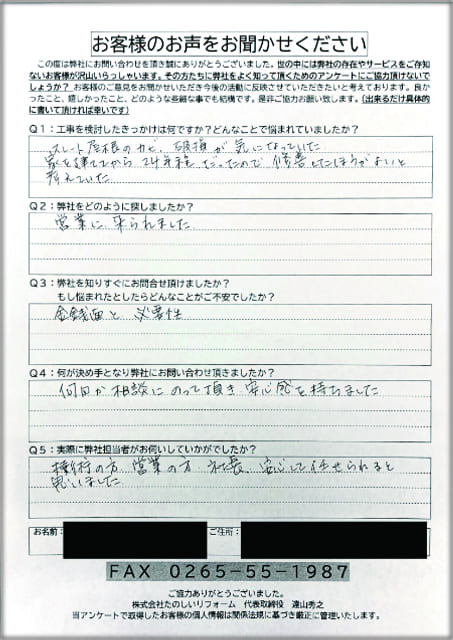 お客様のお声をお聞かせください
この度は弊社にお問い合わせを頂き誠にありがとうございました。世の中には弊社の存在やサービスをご存知
ないお客様が沢山いらっしゃいます。その方たちに弊社をよく知って頂くためのアンケートにご協力頂けないで
しょうか？お客様のご意見をお聞かせいただき今後の活動に反映させていただきたいと考えております。良かっ
たこと、嬉しかったこと、どのような些細な事でも結構です。是非ご協力お願い致します。(出来るだけ具体的
に書いて頂ければ幸いです)
Q1：工事を検討したきっかけは何ですか？どんなことで悩まれていましたか？
スレート屋根のカビ、破損が気になっていた
家を建ててから24年程だったので修善したほうがよいと
考えていた
Q2：弊社をどのように探しましたか？
営業に来られました
Q3：弊社を知りすぐにお問合せ頂けましたか？
もし悩まれたとしたらどんなことがご不安でしたか？
金銭面と必要性
Q4：何が決め手となり弊社にお問い合わせ頂きましたか？
何回か相談にのって頂き安心感を持ちました
Q5：実際に弊社担当者がお伺いしていかがでしたか？
の方、営業の方、社長、安心して任せられると
思いました
お名前： ご住所：
FAX 0265-55-1987
ご協力ありがとうございました。
株式会社たのしいリフォーム 代表取締役 遠山秀之
当アンケートで取得したお客様の個人情報は関係法規に基づき厳正に管理いたします。